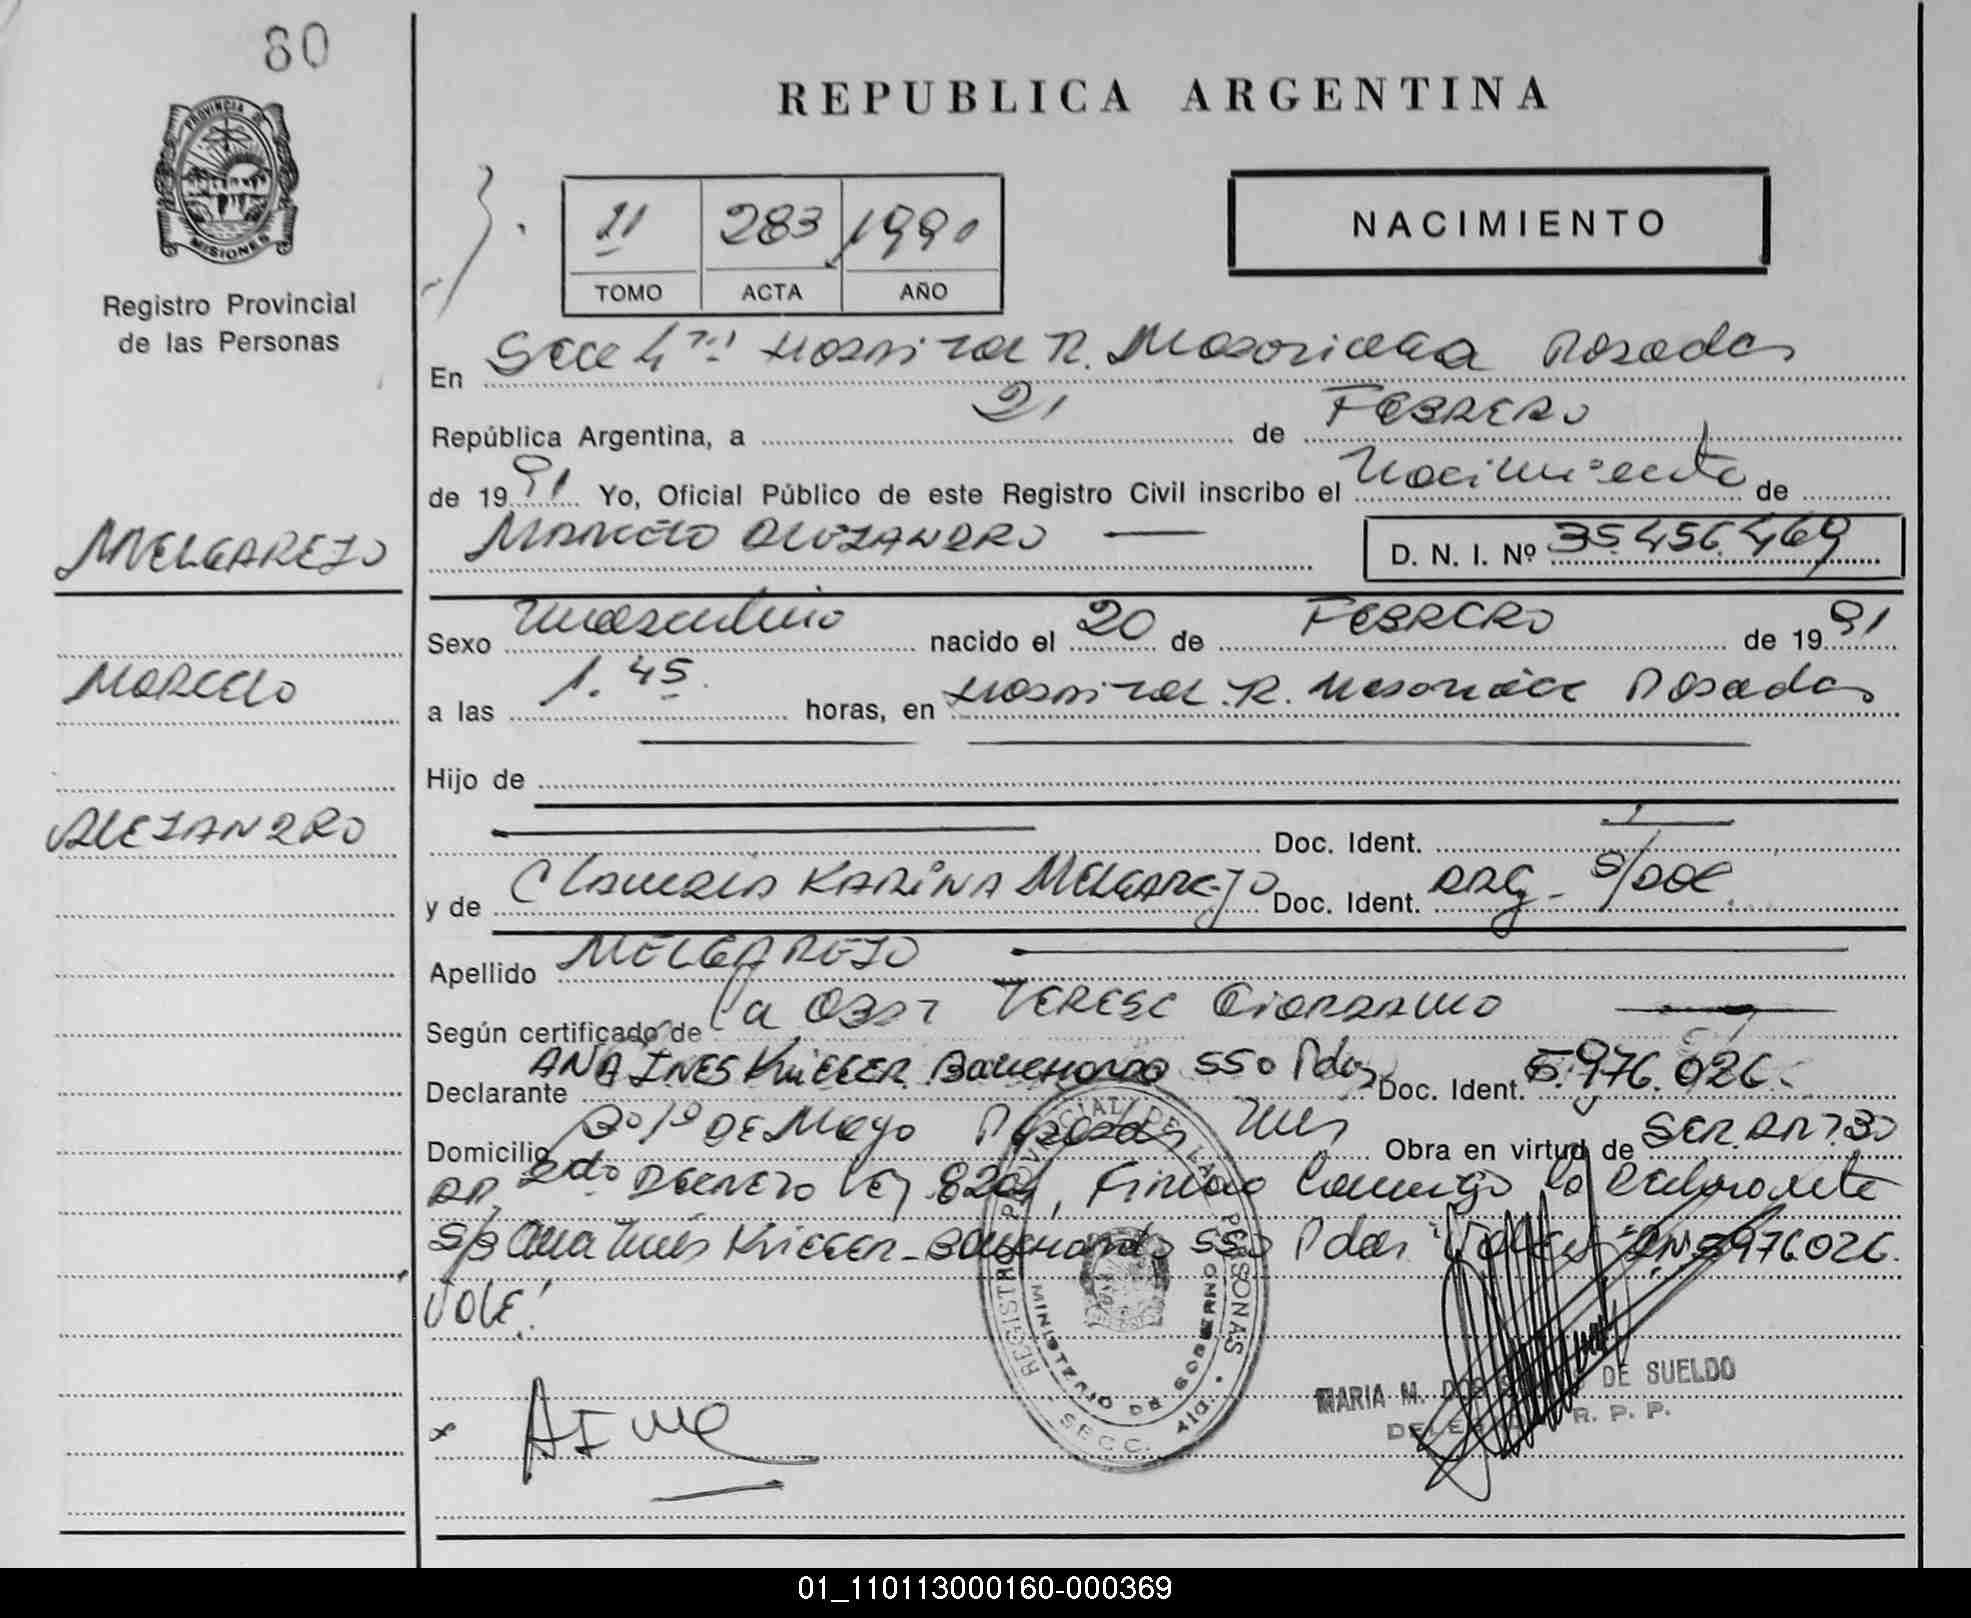 80
REPUBLICA ARGENTINA
PROVINCIA DE
MISIONES
Registro Provincial
de las Personas
11 283 1990
TOMO ACTA AÑO
NACIMIENTO
En Secc 4ta Hospital R. Madariaga Posadas
República Argentina, a 21 de FEBRERO
de 1991 Yo, Oficial Público de este Registro Civil inscribo el Nacimiento de
MELGAREJO
MARCELO ALEJANDRO
D. N. I. Nº 35.456.469
Sexo masculino nacido el 20 de FEBRERO de 1991
MARCELO
a las 1.45 horas, en Hospital R. Madariaga Posadas
Hijo de
ALEJANDRO
Doc. Ident.
y de CLAUDIA KARINA MELGAREJO Doc. Ident. ARG - S/DOC.
Apellido MELGAREJO
Según certificado de la OBST TERESA
Declarante ANA INES KRIEGER BOUCHARD 550 Pdas Doc. Ident. 5.976.026.
Domicilio Bº 1º DE Mayo Posadas Mnes Obra en virtud de SER ART. 30
AP. 2do DECRETO LEY 8204, Firman conmigo la declarante
S/B Ana Inés KRIEGER - BOUCHARD 550 Pdas 5976026.
VALE!
REGISTRO PROVINCIAL DE LAS PERSONAS
MINISTERIO DE GOBIERNO
SECC. 4ta.
MARIA M. DE SUELDO
R. P. P.
01_110113000160-000369